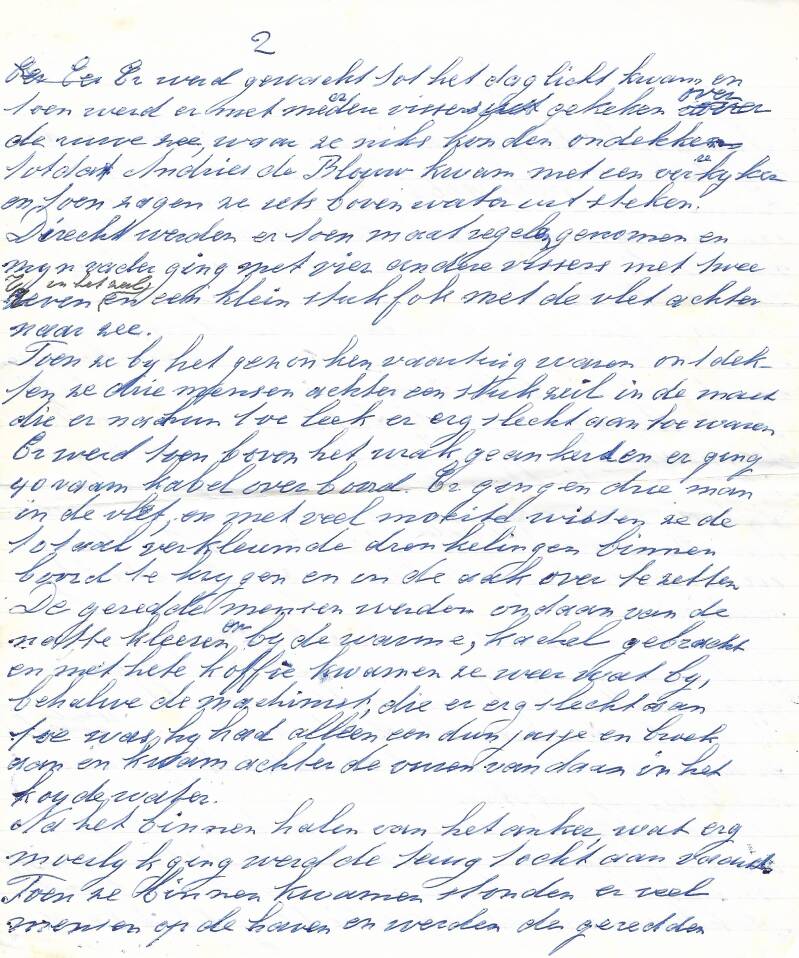 2
Er Er Er werd gewacht tot het daglicht kwam en
toen werd er met meerdere vissers gekeken over
de ruwe zee, waar ze niks konden ondekken
totdat Andries de Blouw kwam met een verrekyker
en toen zagen ze iets boven water uit steken.
Direckt werden er toen maatregelen genomen en
myn vader ging met vier andere vissers met twee
reven in het zeil en een klein stuk fok met de vlet achter
naar zee.
Toen ze by het gezonken vaartuig waren ontdek-
ten ze drie mensen achter een stuk zeil in de mast
die er naar hun toe leek er erg slecht aan toe waren
Er werd toen boven het wrak geankert en er ging
40 vaam kabel over boord. Er gingen drie man
in de vlet, en met veel moeite wisten ze de
totaal verkleumde drenkelingen binnen
boord te krygen en in de aak over te zetten
De geredde mensen werden ondaan van de
natte kleeren en by de warme, kachel gebracht
en met hete koffie kwamen ze weer wat by,
behalve de machinist, die er erg slecht aan
toe was, hy had alleen een dun jasje en broek
aan en kwam achter de vuren vandaan in het
koude water.
Na het binnen halen van het anker, wat erg
moeilyk ging werd de terug tocht aan vaard
Toen ze binnen kwamen stonden er veel
mensen op de haven en werden de geredden